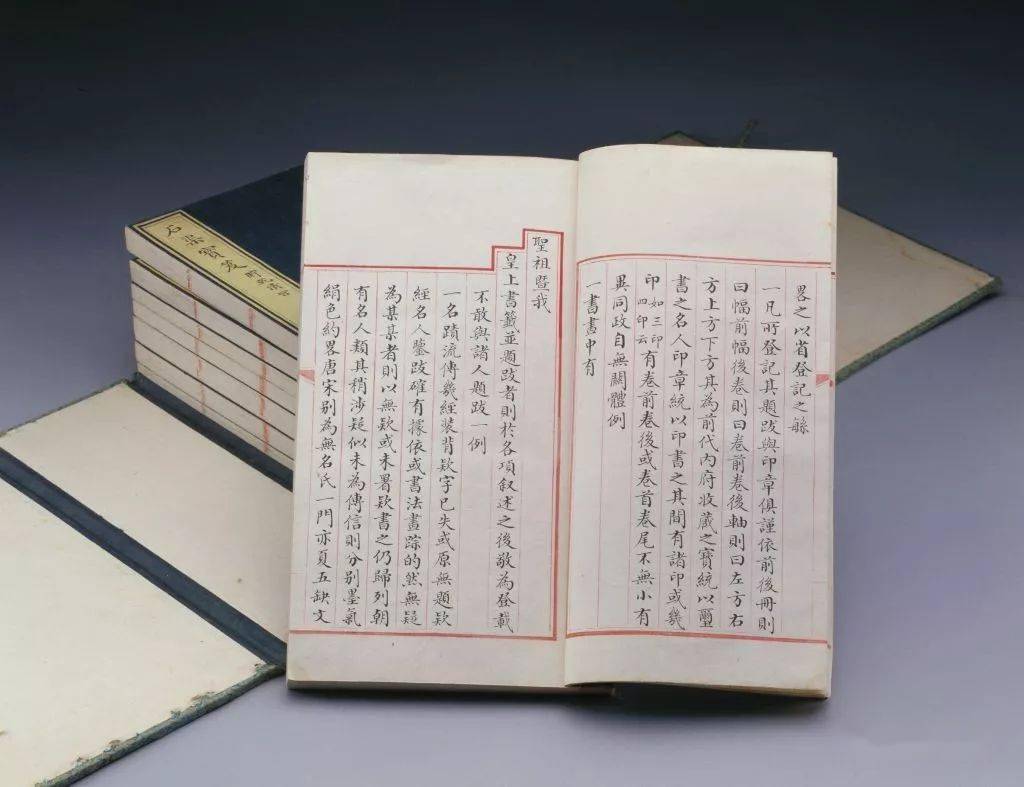 畧之以省登記之緐
一凡所登記其題跋與印章俱謹依前後冊則
曰幅前幅後卷則曰卷前卷後軸則曰左方右
方上方下方其為前代內府收藏之寳統以璽
書之名人印章統以印書之其間有諸印或幾
印如三印四印云有卷前卷後或卷首卷尾不無小有
異同政自無關體例
一書畫中有
聖祖暨我
皇上書籤並題跋者則於各項叙述之後敬為登載
不敢與諸人題跋一例
一名蹟流傳幾經装背欵字已失或原無題欵
經名人鑒跋確有據依或書法畫踪的然無疑
為某某者則以無欵或未署欵書之仍歸列朝
有名人類其稍涉疑似未為傳信則分别墨氣
絹色約畧唐宋别為無名氏一門亦夏五缺文
石渠寶笈